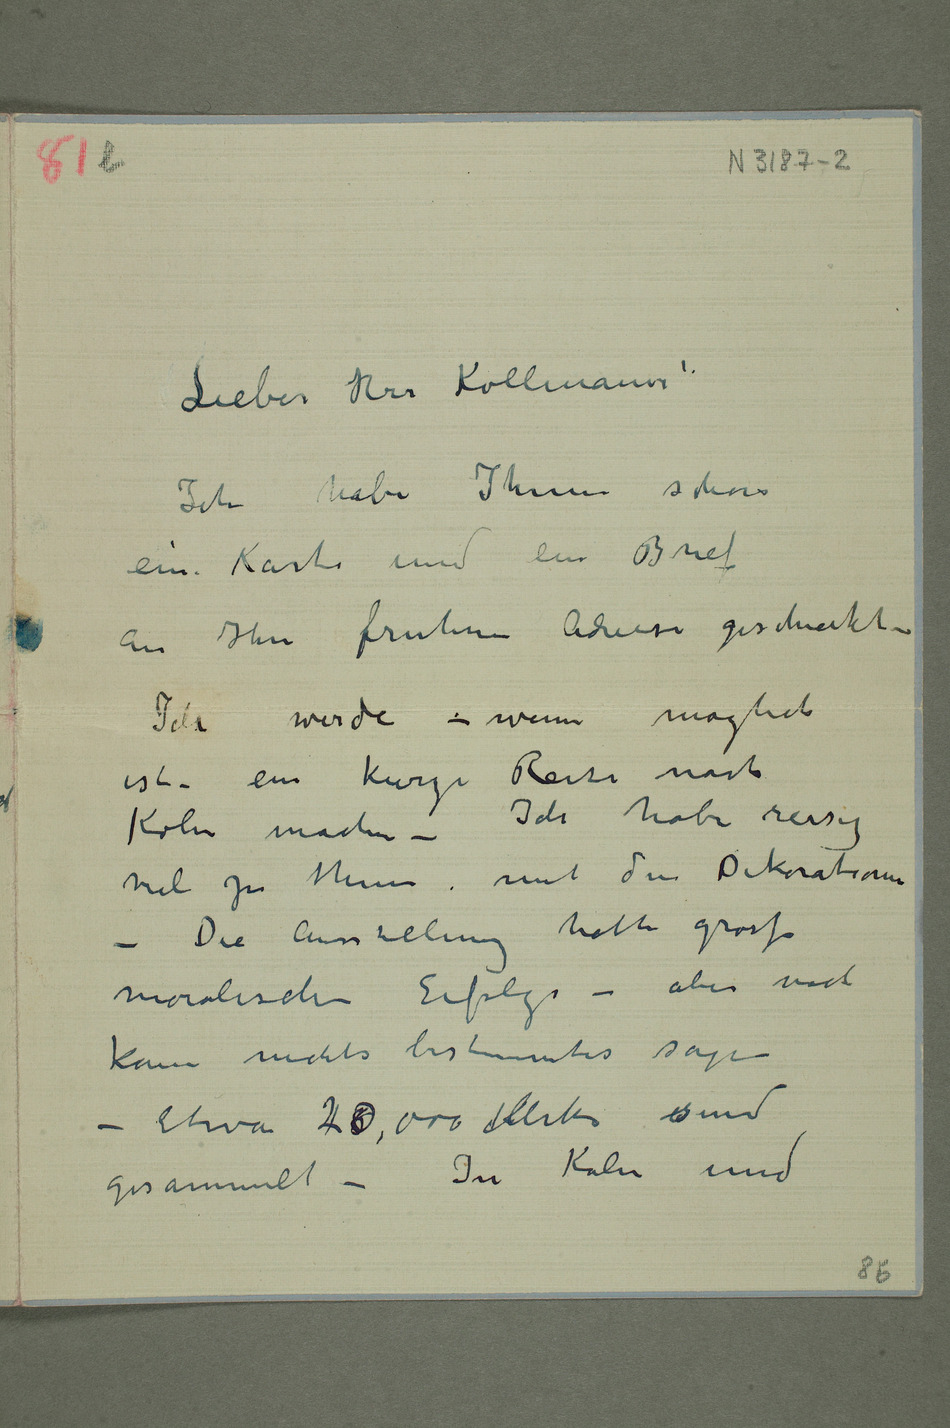 81b
N 3187-2
Lieber Herr Kollmann!
Ich habe Ihnen schon
ein Karte und ein Brief
an Ihre fruhere Adresse geschickt –
Ich werde – wenn moglich
ist – ein kurze Reise nach
Koln machen – Ich habe riesig
viel zu thun. mit den Dekorationen
– Die Ausstellung hatte grosse
moralischen Erfolge – aber noch
kann nichts bestimmtes sagen
– Etwa 20,000 Mk sind
gesammelt – In Koln und
86